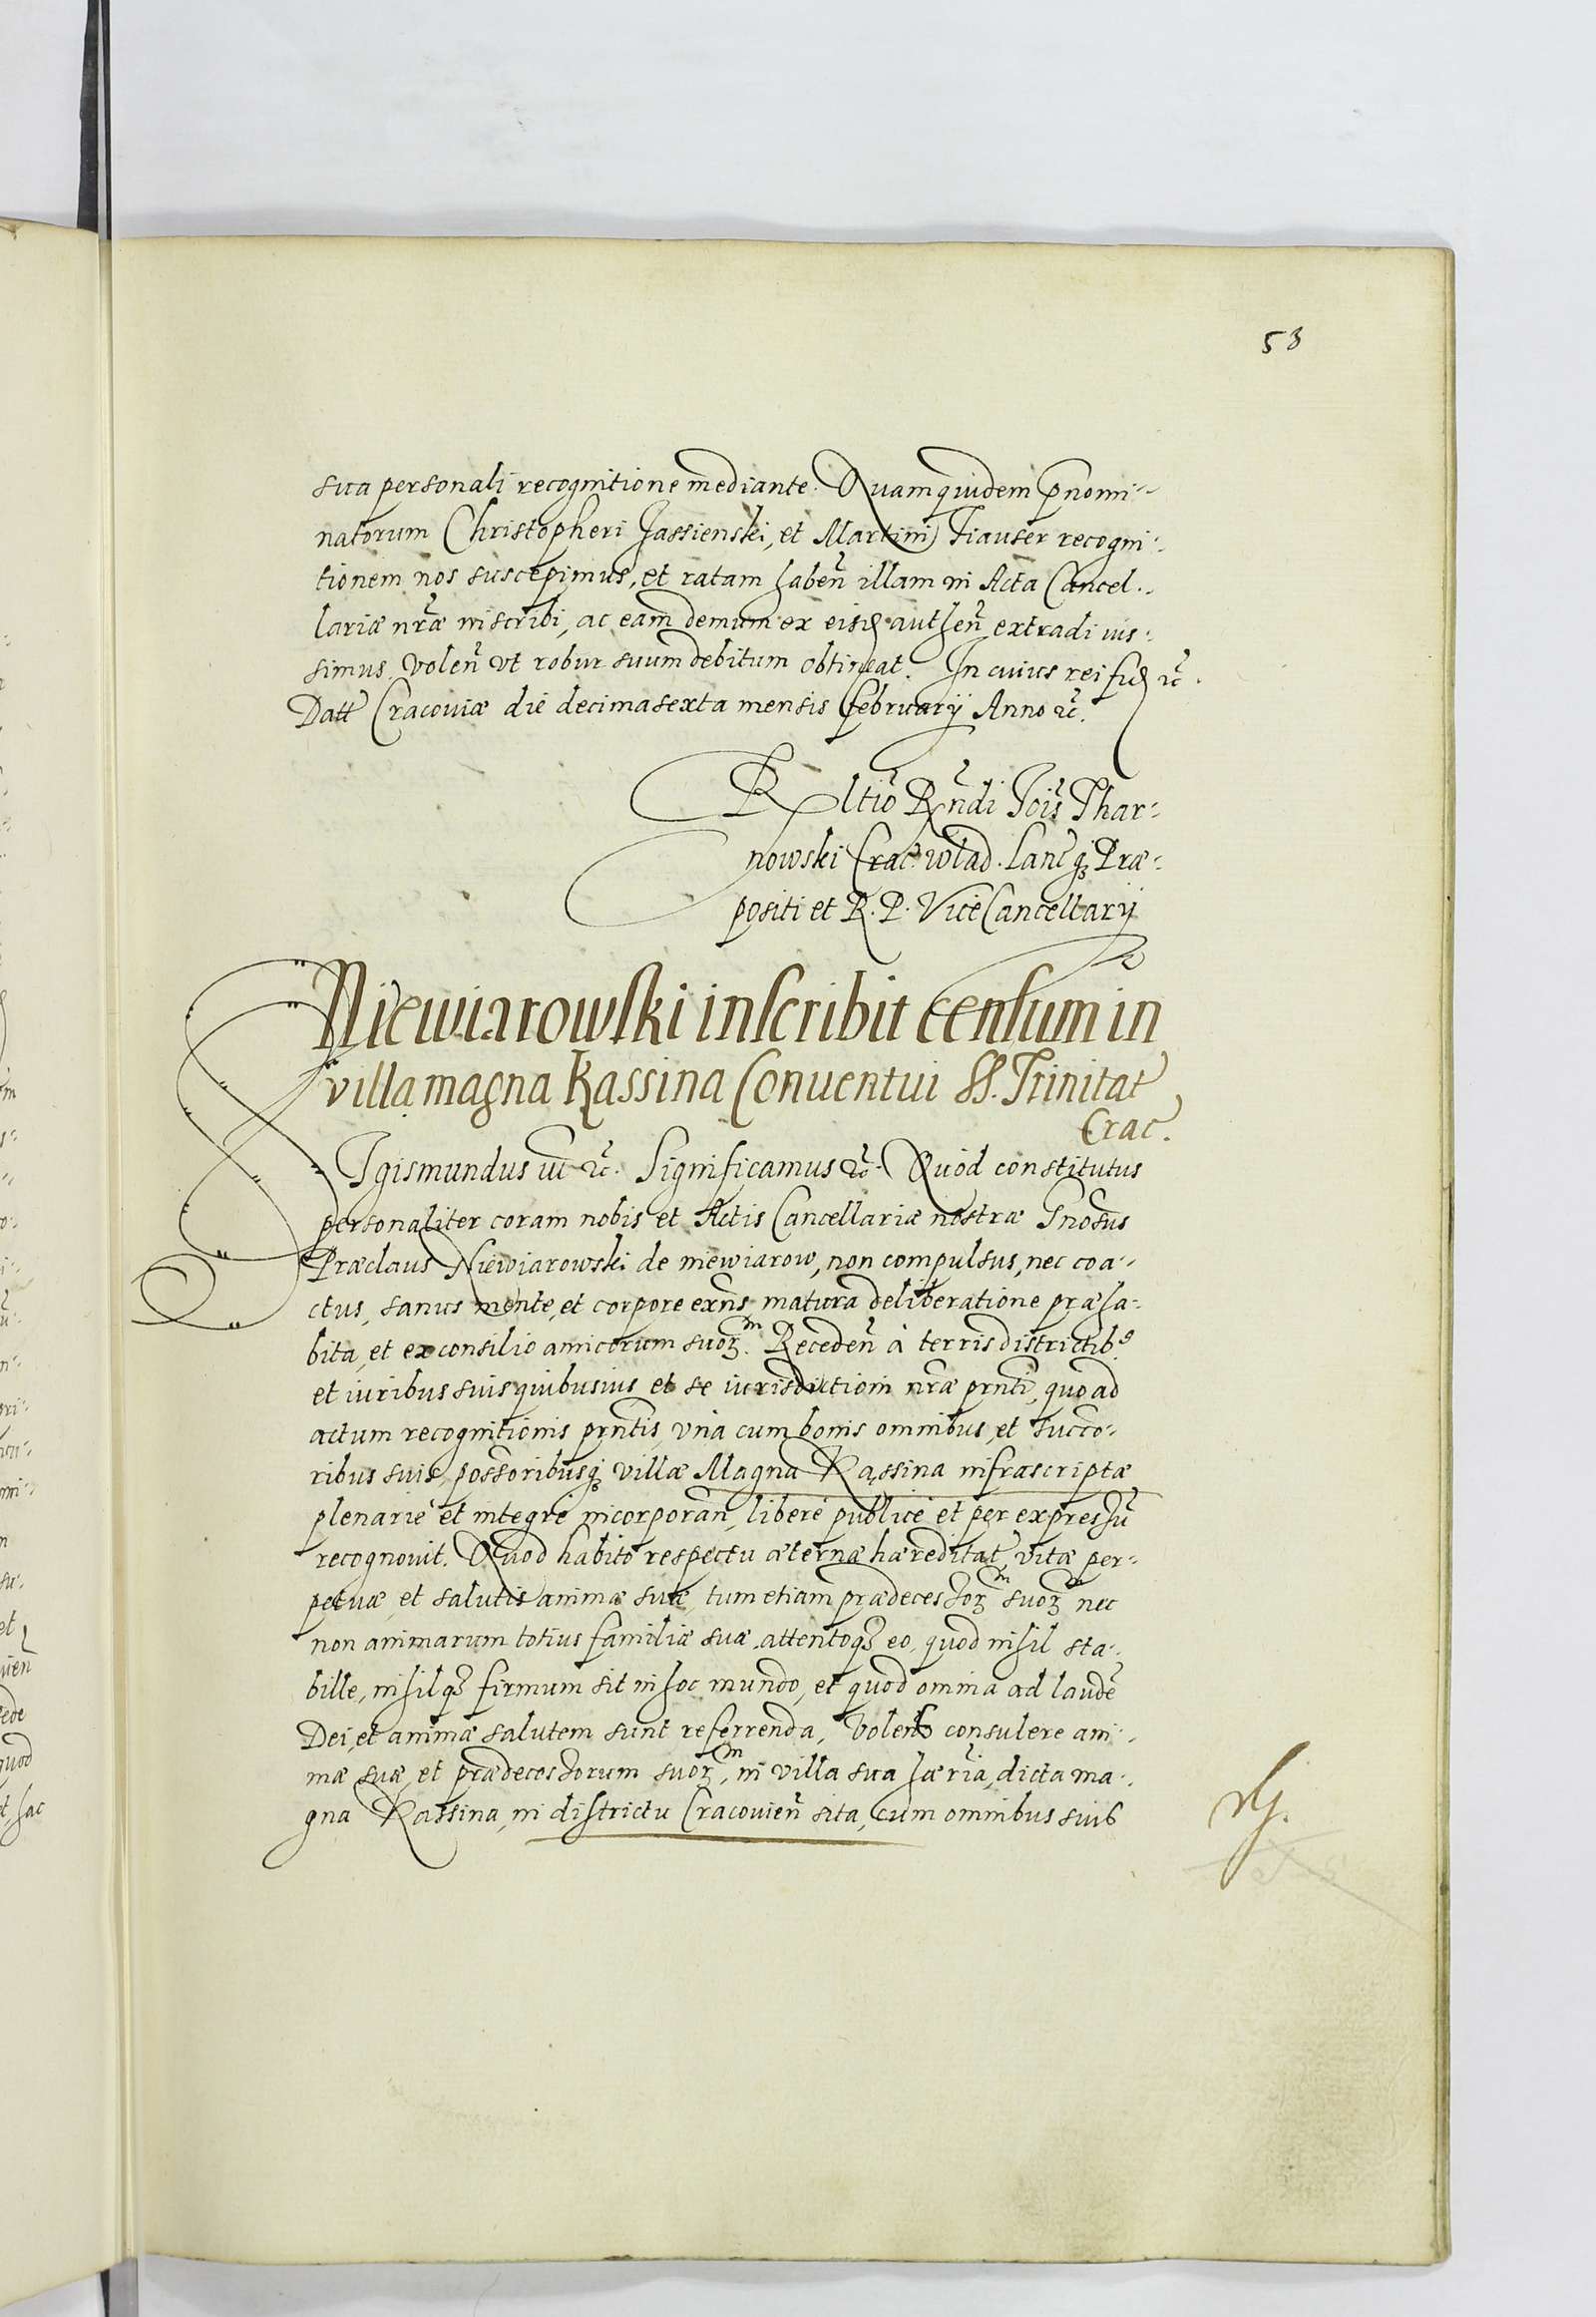 53
sua personali recognitione mediante. Quamquidem p̃nomi-
natorum Christopheri Jassienski, et Martini Tiauser recogni-
tionem nos suscepimus, et ratam habeñ illam in Acta Cancel-
lariæ nr̃æ inscribi, ac eam demum ex eisd autheñ extradi ius-
simus. Voleñ vt robur suum debitum obtineat. In cuius rei fid ꝛc.
Datt Cracouiæ die decimasexta mensis february Anno ꝛc.
Rltio Rñdi Jois Thar-
nowski Crac. wlad. Lancq Præ-
positi et R. P. ViceCancellarij
Niewiarowski inscribit censum in
villa magna Kassina Conuentui SS. Trinitat
Crac.
Sigismundus iii ꝛc. Significamus ꝛc. Quod constitutus
personaliter coram nobis et Actis Cancellariæ nostræ Gnosus
Præclaus Niewiarowski de niewiarow, non compulsus, nec coa-
ctus, sanus mente, et corpore exñs, matura deliberatione præha-
bita, et ex consilio amicorum suorꝫ. Recedeñ à terris districtib9
et iuribus suis quibusuis et se iurisdictioni nr̃æ prñti, quo ad
actum recognitionis prñtis, vna cum bonis omnibus, et succo-
ribus suis, possoribusqꝫ villæ Magna Kassina infrascriptæ
plenarie et integre incorporañ, libere publice et per expressũ
recognouit. Quod habito respectu æternæ hæreditat, vitæ per-
petuæ, et salutis animæ suæ, tum etiam prædecessorꝫ suorꝫ nec
non animarum totius familiæ suæ, attentoqꝫ eo, quod nihil sta-
bille, nihilqꝫ firmum sit in hoc mundo, et quod omnia ad laudẽ
Dei, et animæ salutem sunt referrenda, Volens consulere ani-
mæ suæ, et prædecessorum suorꝫ, in villa sua hæria, dicta ma-
gna Kassina, in districtu Cracouieñ sita, cum omnibus suis